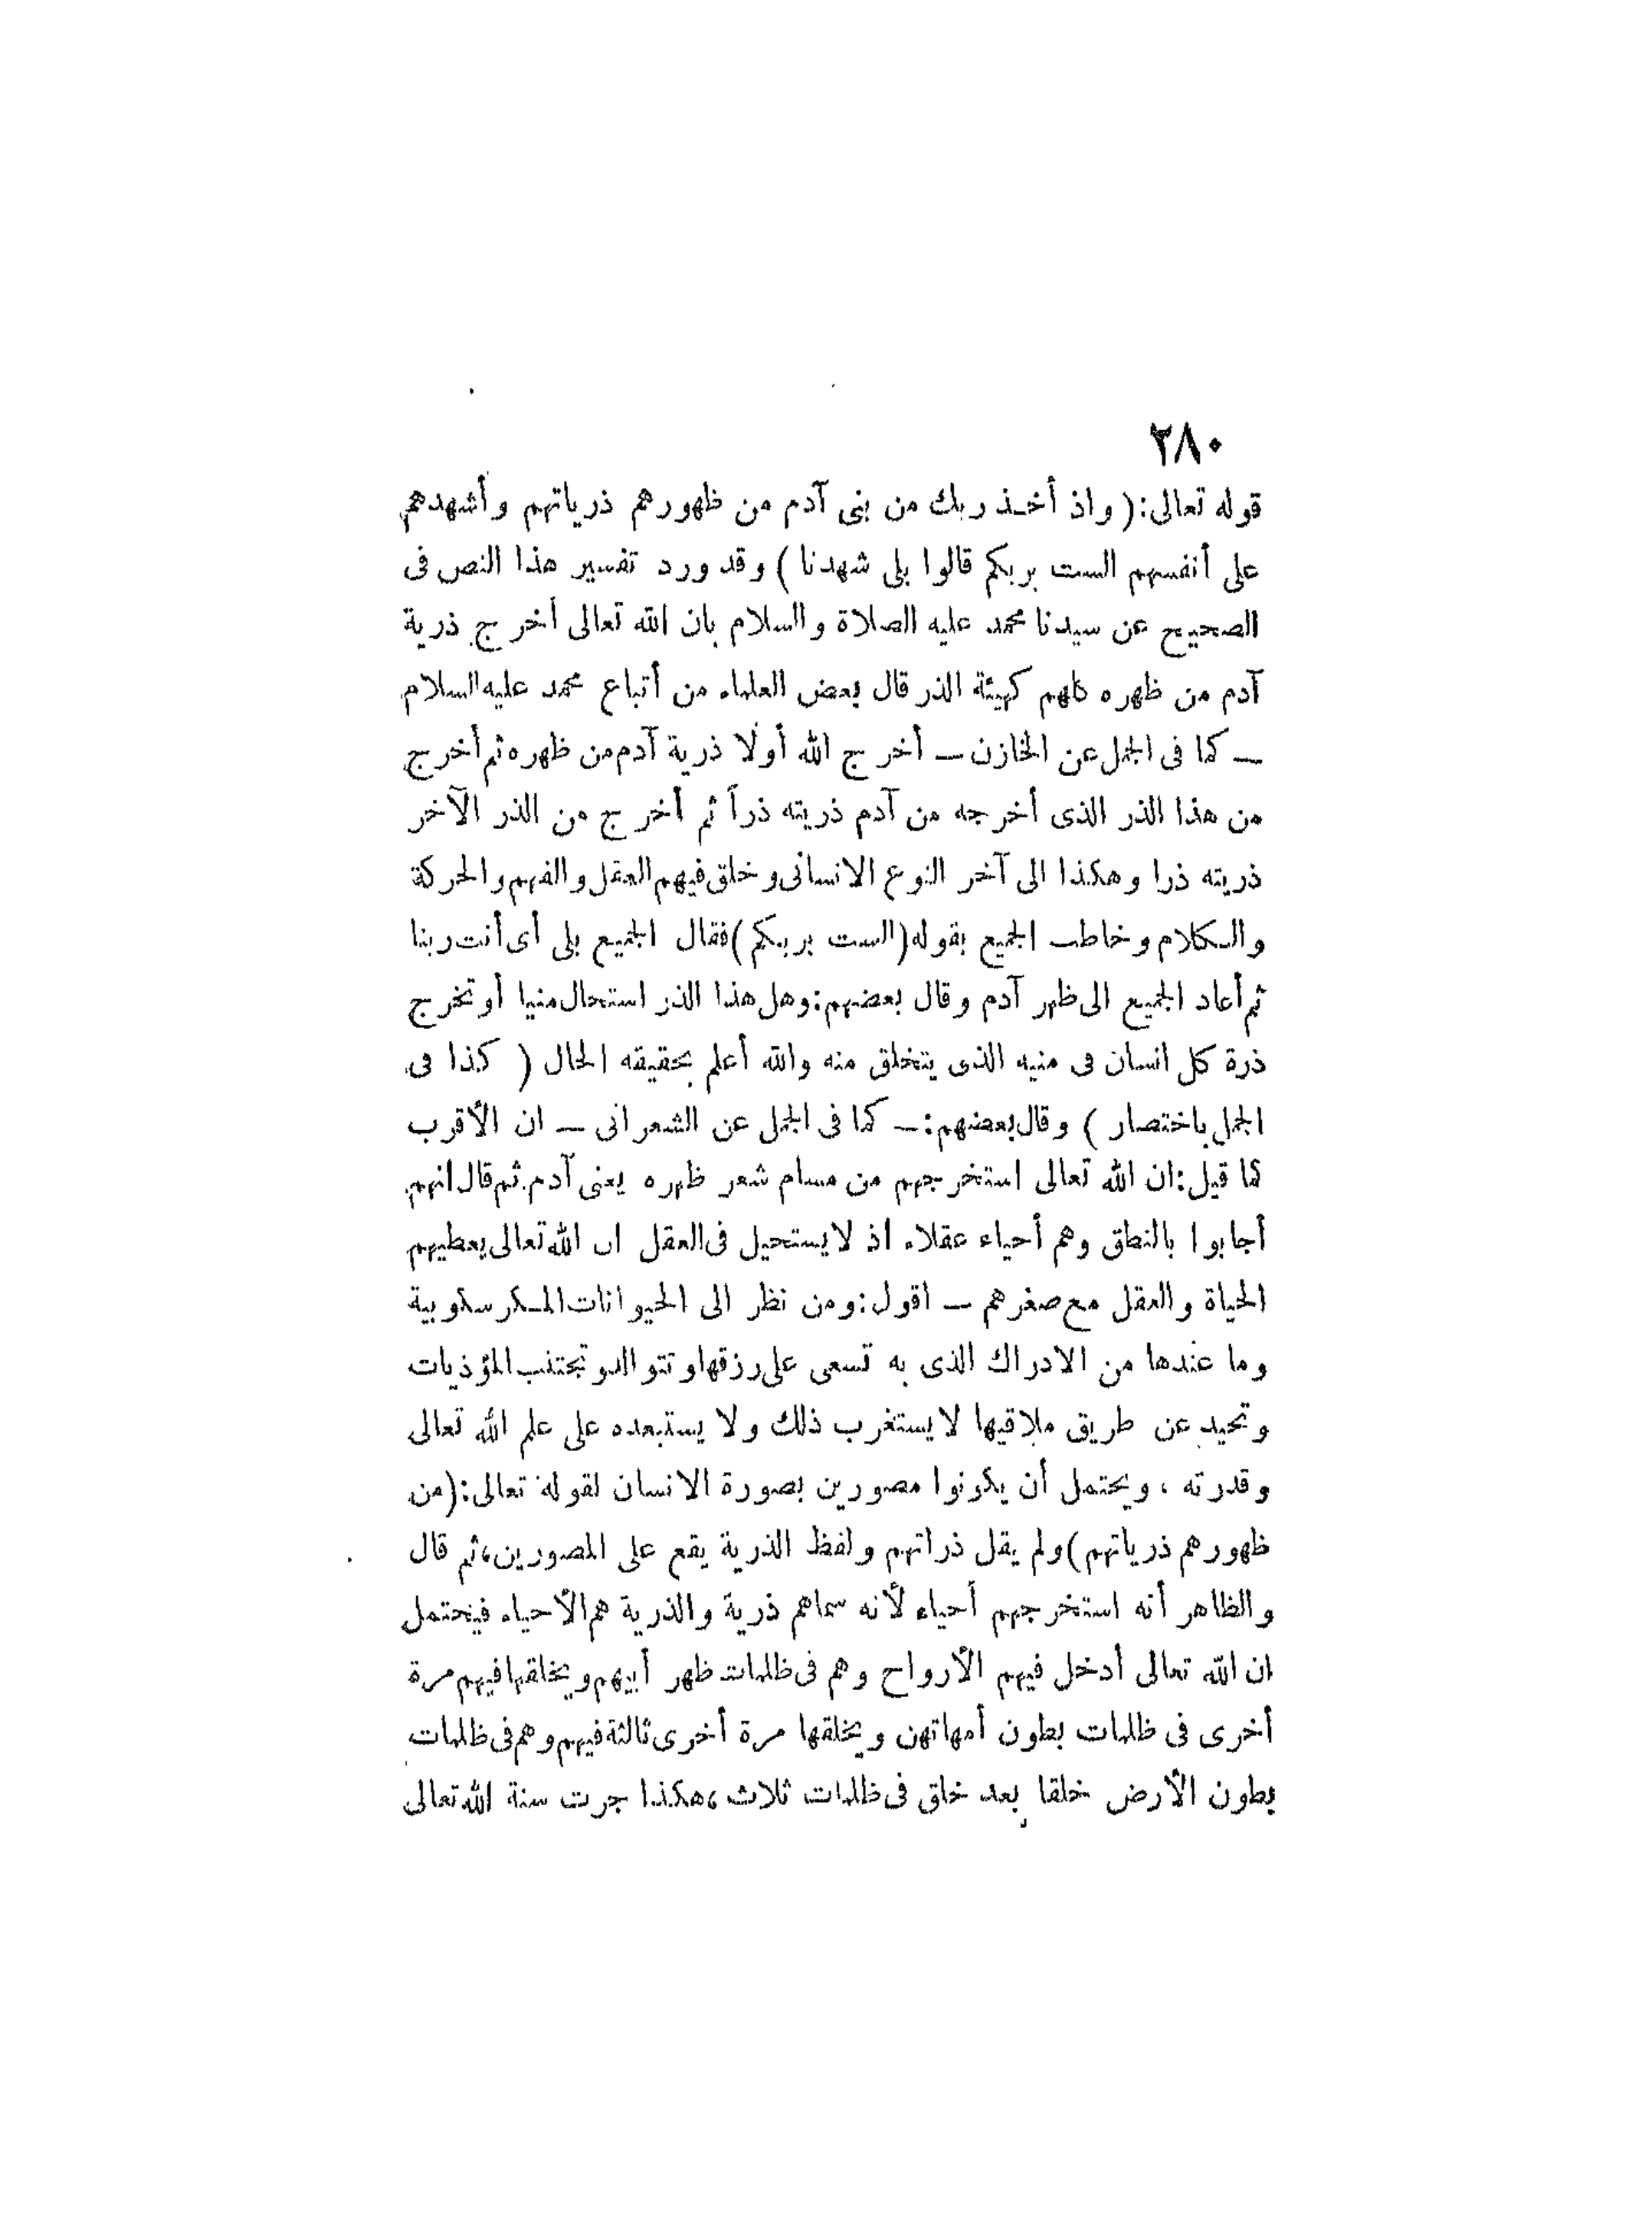 ٢٨٠
قوله تعالى:( واذ أخذ ربك من بنى آدم من ظهورهم ذرياتهم وأشهدهم
على أنفسهم الست بربكم قالوا بلى شهدنا ) وقد ورد تفسير هذا النص فى
الصحيح عن سيدنا محمد عليه الصلاة والسلام بان الله تعالى أخرج ذرية
آدم من ظهره كلهم كهيئة الذر قال بعض العلماء من أتباع محمد عليه السلام
ـ كما فى الجمل عن الخازن ـ أخرج الله أولا ذرية آدم من ظهره ثم أخرج
من هذا الذر الذى أخرجه من آدم ذريته ذراً ثم أخرج من الذر الآخر
ذريته ذرا وهكذا الى آخر النوع الانسانى وخلق فيهم العقل والفهم والحركة
والكلام وخاطب الجميع بقوله(الست بربكم)فقال الجميع بلى أى أنت ربنا
ثم أعاد الجميع الى ظهر آدم وقال بعضهم:وهل هذا الذر استحال منيا أو تخرج
ذرة كل انسان فى منيه الذى يتخلق منه والله أعلم بحقيقه الحال ( كذا فى
الجمل باختصار ) وقال بعضهم:ـ كما فى الجمل عن الشعرانى ـ ان الأقرب
كما قيل:ان الله تعالى استخرجهم من مسام شعر ظهره يعنى آدم.ثم قال انهم
أجابوا بالنطق وهم أحياء عقلاء اذ لا يستحيل فى العقل ان الله تعالى يعطيهم
الحياة والعقل مع صغرهم ـ اقول:ومن نظر الى الحيوانات المكرسكوبية
وما عندها من الادراك الذى به تسعى على رزقها وتتوالد وتجتنب المؤذيات
وتحيد عن طريق ملاقيها لا يستغرب ذلك ولا يستبعده على علم الله تعالى
وقدرته ، ويحتمل أن يكونوا مصورين بصورة الانسان لقوله تعالى:(من
ظهورهم ذرياتهم)ولم يقل ذراتهم ولفظ الذرية يقع على المصورين،ثم قال
والظاهر أنه استخرجهم أحياء لأنه سماهم ذرية والذرية هم الأحياء فيحتمل
ان الله تعالى أدخل فيهم الأرواح وهم فى ظلمات ظهر أبيهم ويخلقها فيهم مرة
أخرى فى ظلمات بطون أمهاتهن ويخلقها مرة أخرى ثالثة فيهم وهم فى ظلمات
بطون الأرض خلقا بعد خلق فى ظلمات ثلاث،هكذا جرت سنة الله تعالى